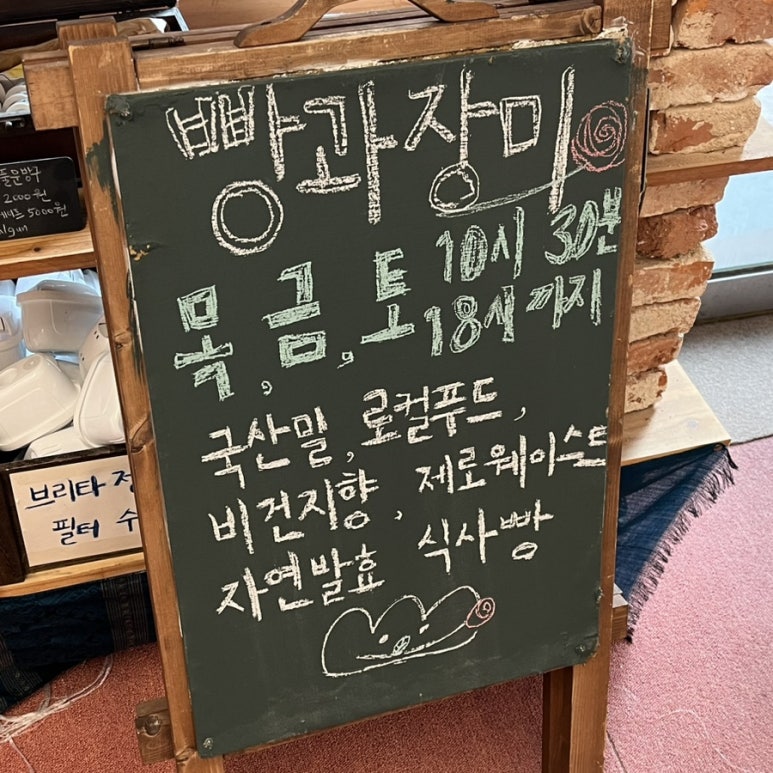 빵과장미
목, 금, 토 10시 30분
18시까지
국산밀, 로컬푸드,
비건지향, 제로웨이스트
자연발효 식사빵
2000원
5000원
브리타 정
필터 수